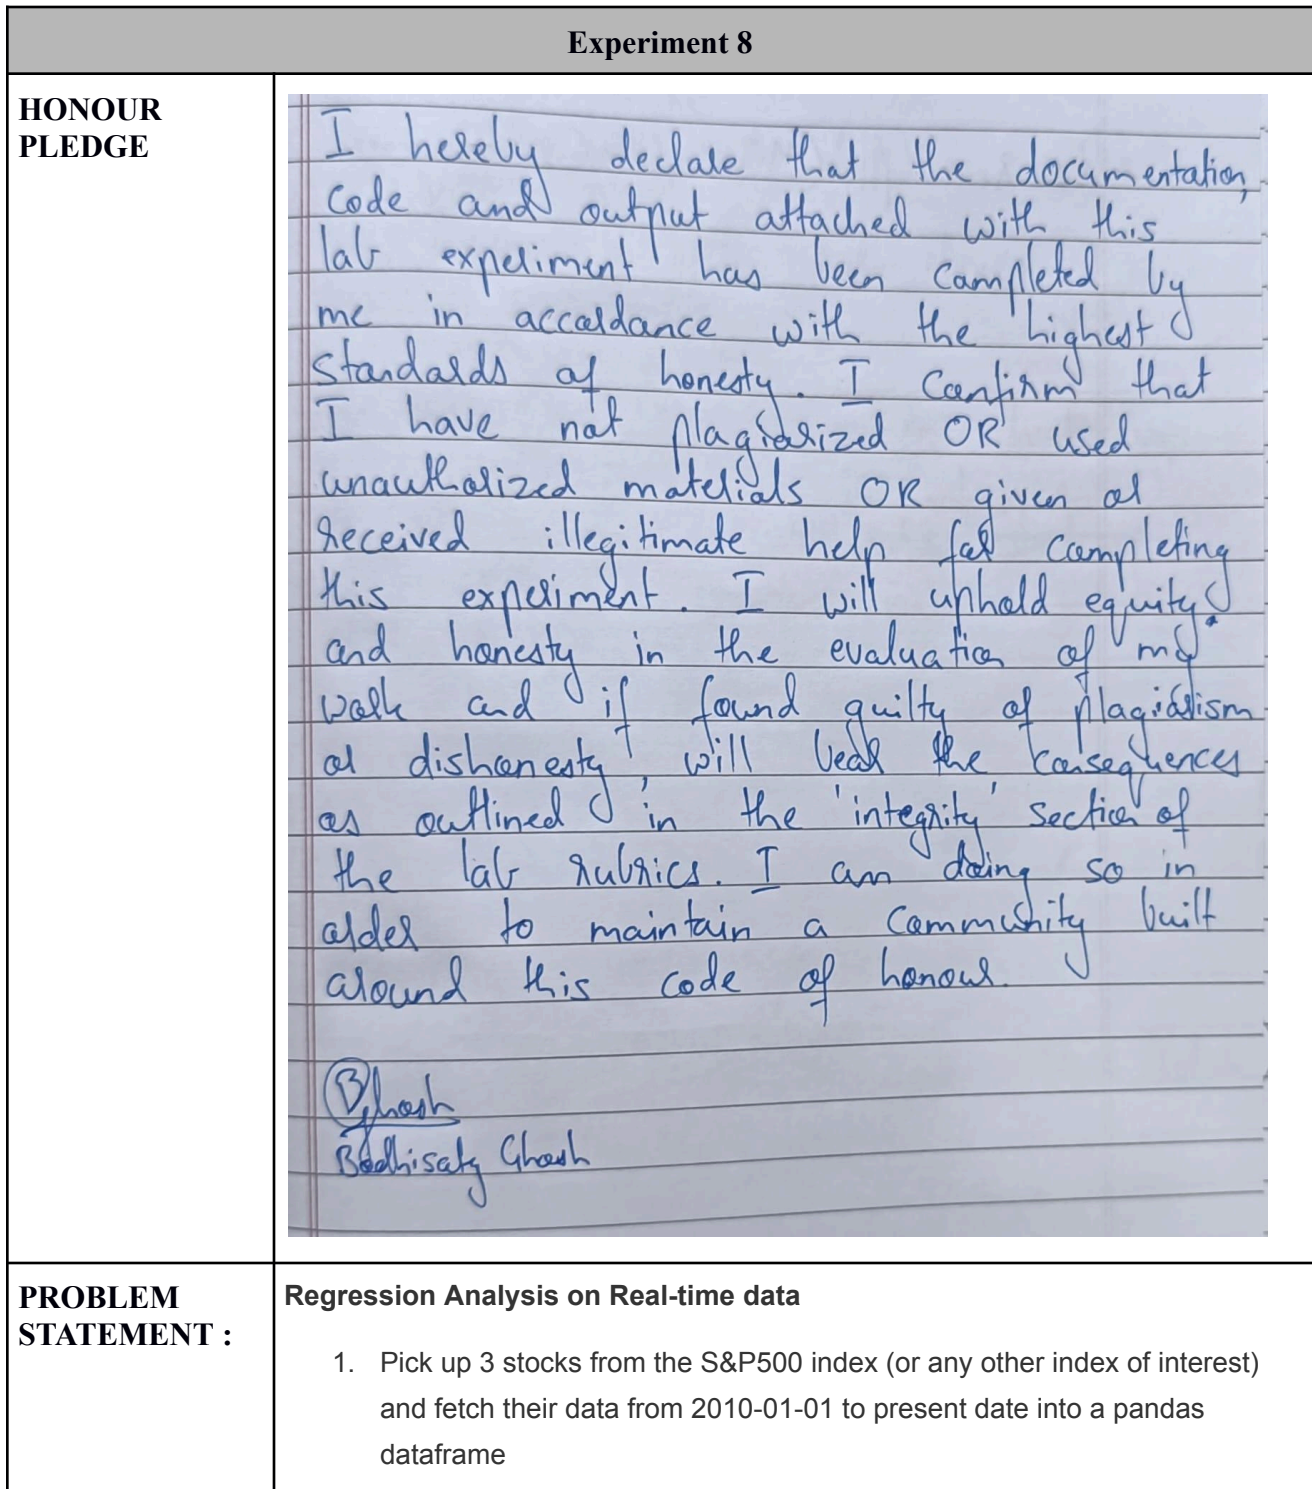 Experiment 8
HONOUR
PLEDGE
I hereby declare that the documentation,
code and output attached with this
lab experiment has been completed by
me in accordance with the highest
standards of honesty. I confirm that
I have not plagiarized OR used
unauthorized materials OR given or
received illegitimate help for completing
this experiment. I will uphold equity
and honesty in the evaluation of my
work and if found guilty of plagiarism
or dishonesty, will bear the consequences
as outlined in the 'integrity' section of
the lab rubrics. I am doing so in
order to maintain a community built
around this code of honour.
BGhosh
Bodhisatya Ghosh
PROBLEM
STATEMENT :
Regression Analysis on Real-time data
1. Pick up 3 stocks from the S&P500 index (or any other index of interest)
and fetch their data from 2010-01-01 to present date into a pandas
dataframe